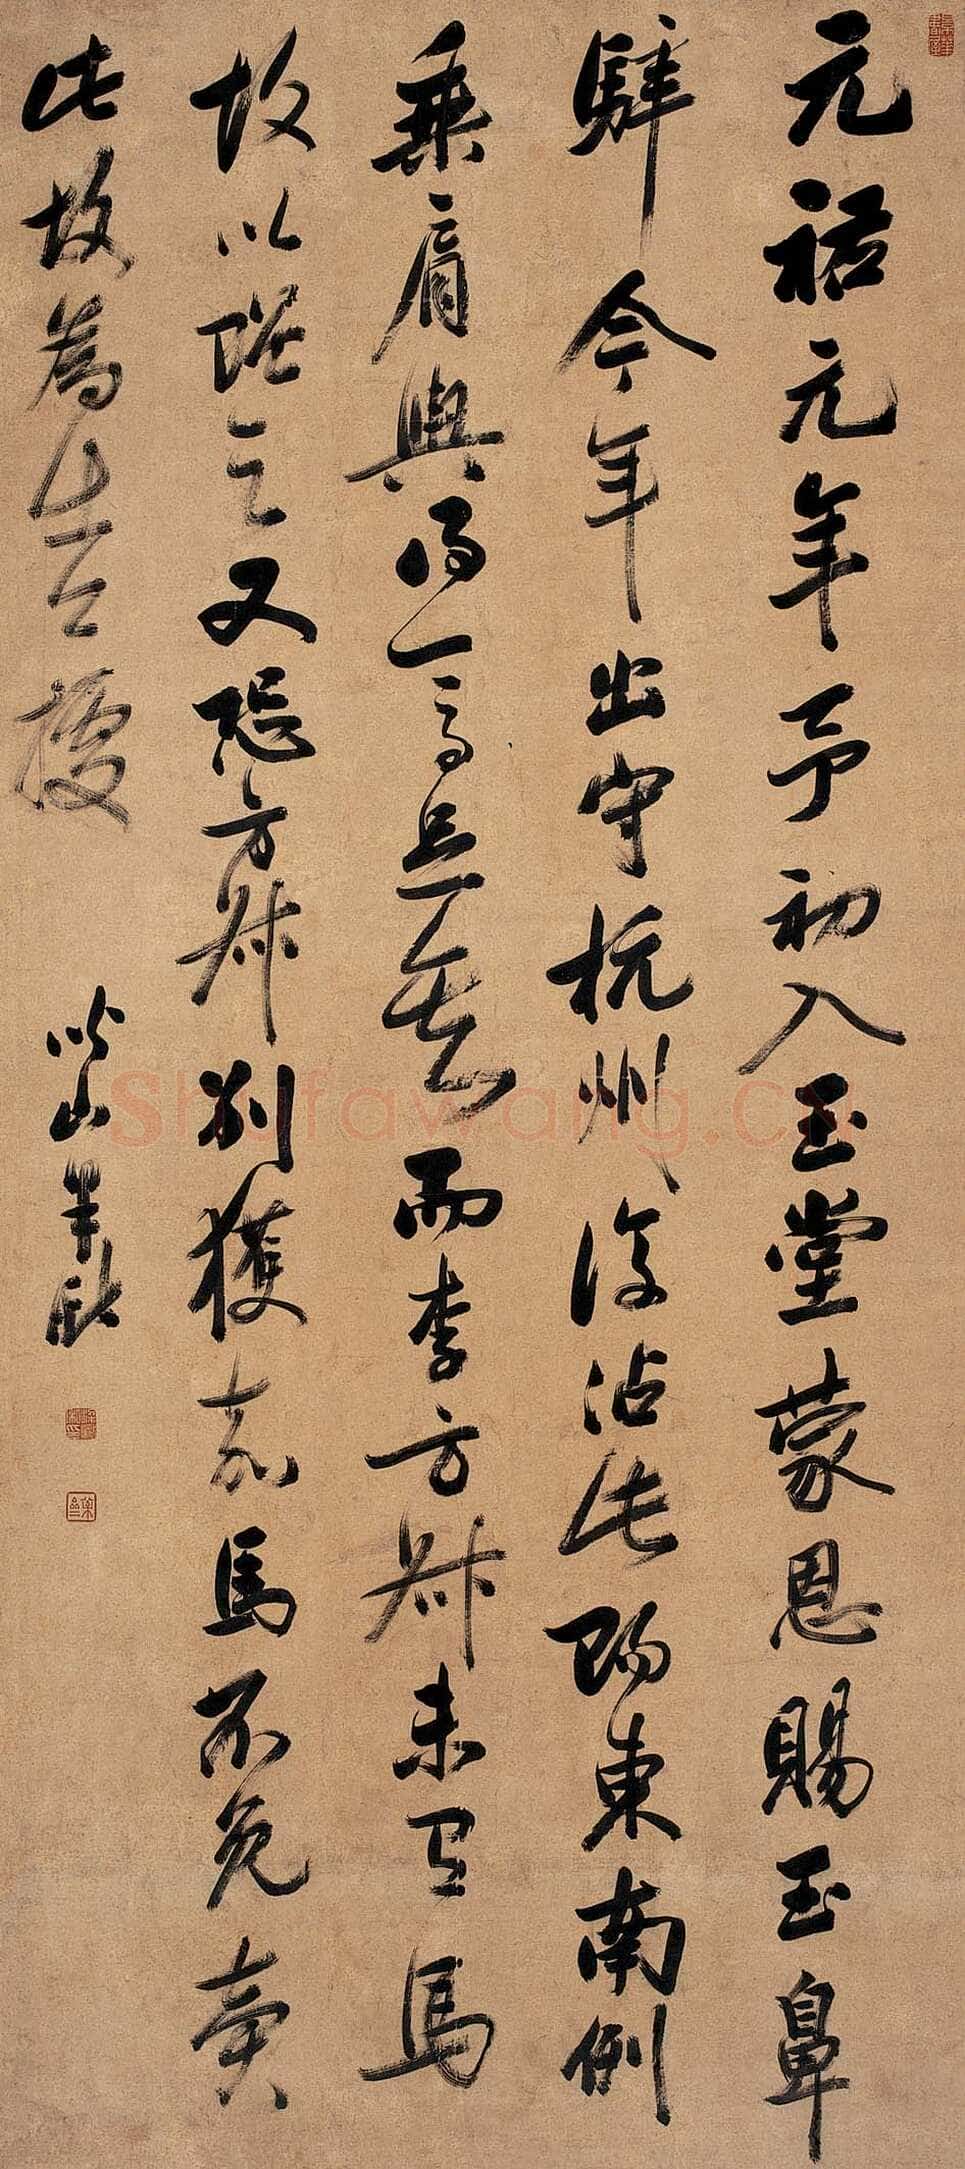 元祐元年予初入玉堂蒙恩賜玉鼻
騂今年出守杭州復沾此賜東南例
乘肩輿得一馬足矣而李方叔未有馬
故以贈之又恐方叔別獲嘉馬不免賣
此故為出公據
Shufawang.cn